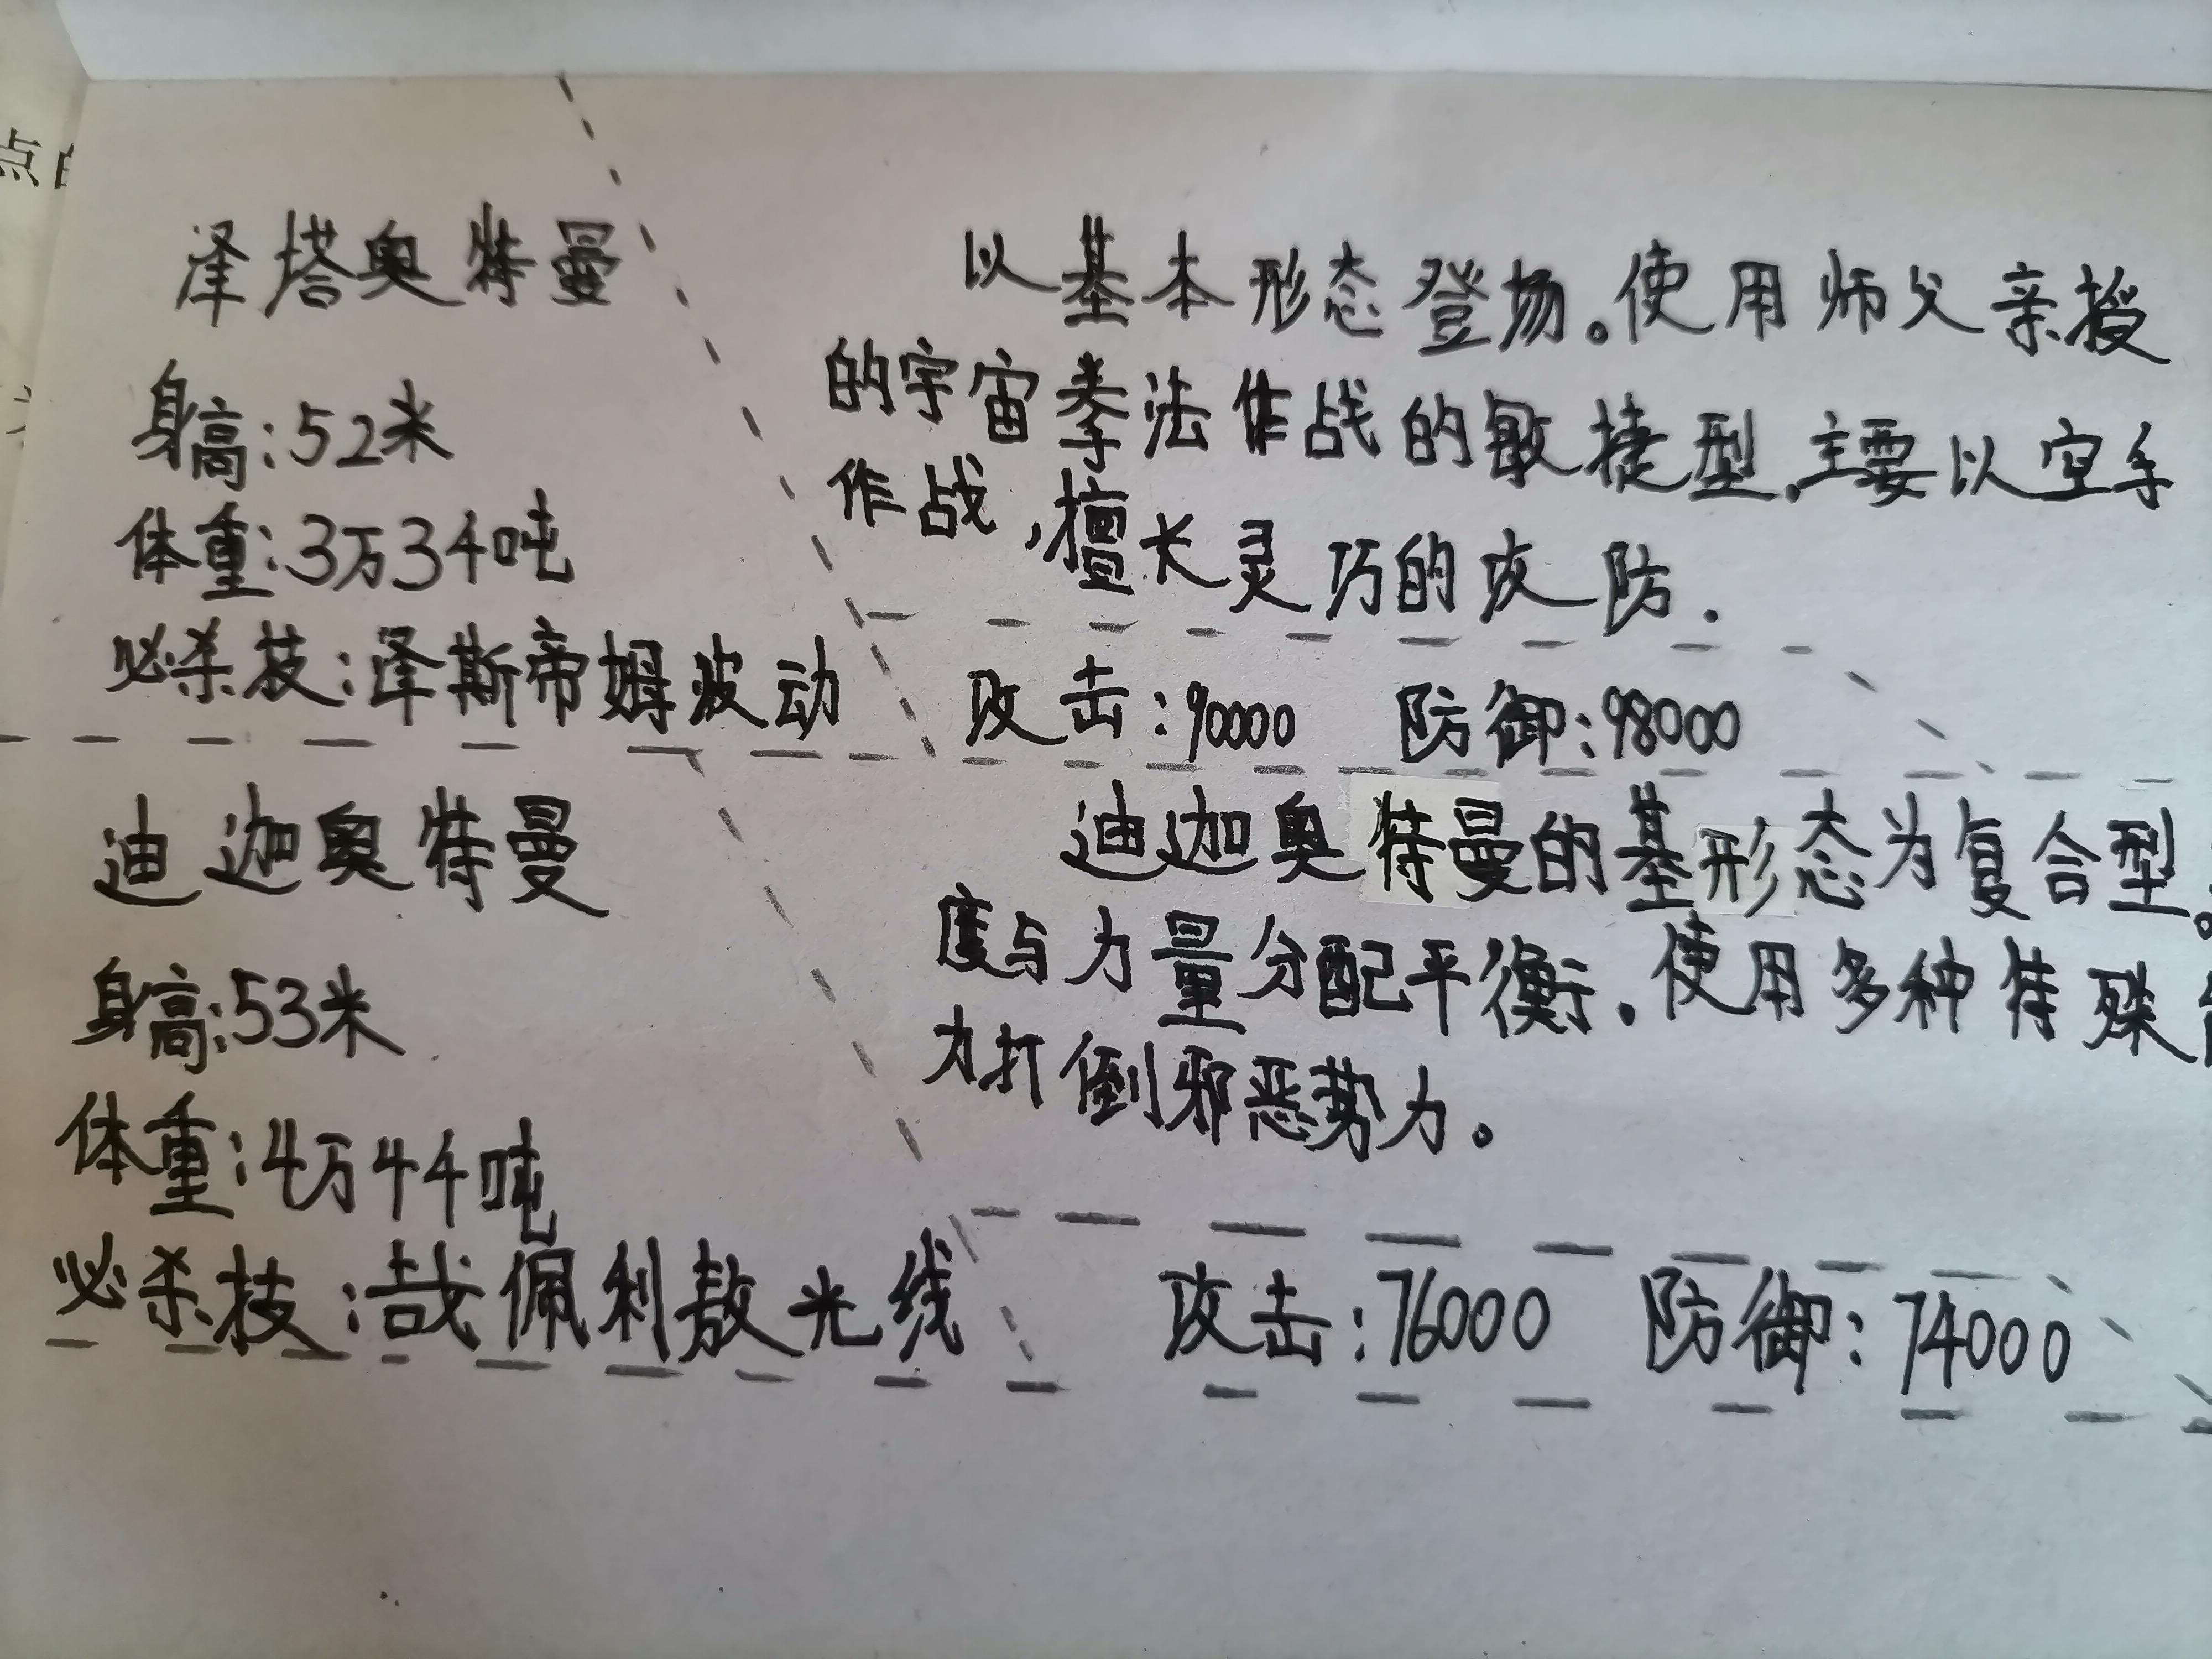 点
泽塔奥特曼
身高:52米
体重:3万34吨
必杀技:泽斯帝姆波动
以基本形态登场。使用师父亲授
的宇宙拳法作战的敏捷型,主要以空手
作战,擅长灵巧的攻防.
攻击:90000 防御:98000
迪迦奥特曼
身高:53米
体重:4万44吨
必杀技:哉佩利敖光线
迪迦奥特曼的基形态为复合型。
度与力量分配平衡.使用多种特殊
力打倒邪恶势力。
攻击:76000 防御:74000